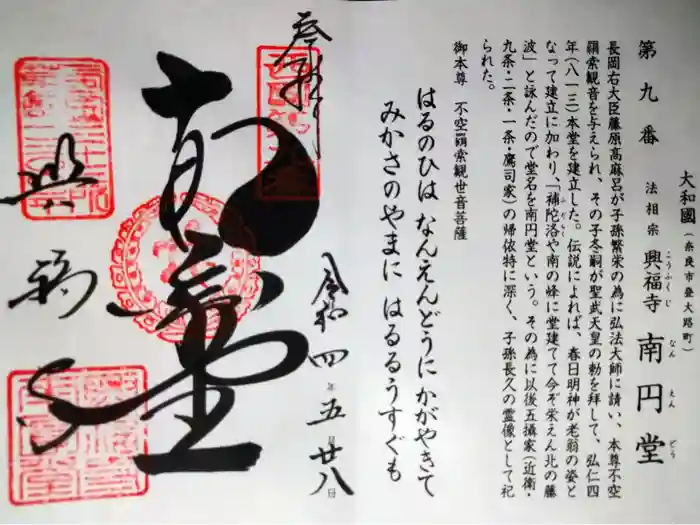 大和國（奈良市登大路町）
第九番 法相宗 興福寺 南円堂
こうふくじ なんえんどう
長岡右大臣藤原高麻呂が子孫繁栄の為に弘法大師に請い、本尊不空
羂索観音を与えられ、その子冬嗣が聖武天皇の勅を拝して、弘仁四
年（八一三）本堂を建立した。伝説によれば、春日明神が老翁の姿と
なって建立に加わり、「補陀洛や南の岸に堂建てて今ぞ栄えん北の藤
波」と詠んだので堂名を南円堂という。その為に以後五攝家（近衛・
九条・二条・一条・鷹司家）の帰依特に深く、子孫長久の霊像として祀
られた。
御本尊 不空羂索観世音菩薩
はるのひは なんえんどうに かがやきて
みかさのやまに はるるうすぐも
奉拝
令和四年五月廿八日
南円堂
興福寺